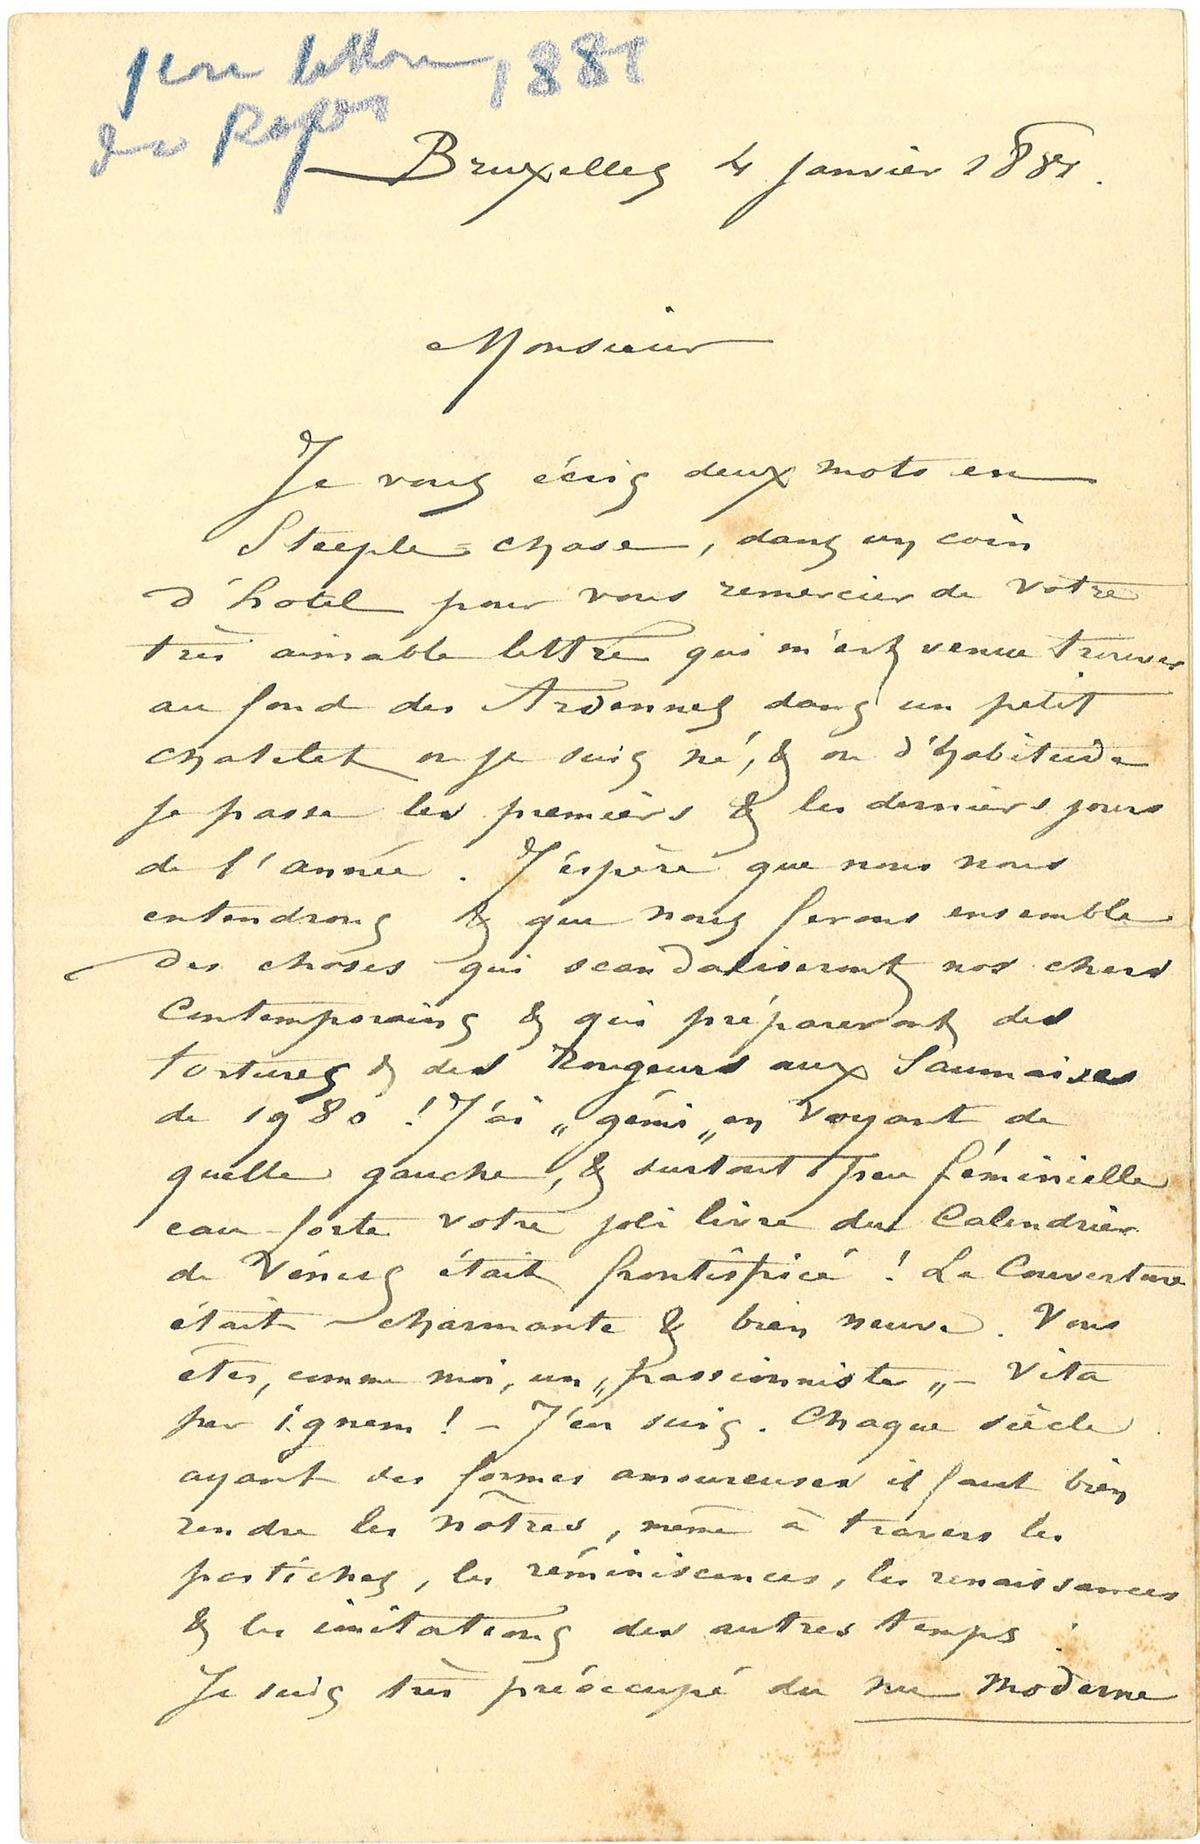 1ère lettre 1881
de Rops
Bruxelles 4 janvier 1881.
Monsieur
Je vous écris deux mots en
Steeple=chase, dans un coin
d'hotel pour vous remercier de votre
très aimable lettre qui m'est venue trouver
au fond des Ardennes dans un petit
chatelet ou je suis né, & ou d'habitude
je passe les premiers & les derniers jours
de l'année. J'espère que nous nous
entendrons & que nous ferons ensemble
des choses qui scandaliseront nos chers
Contemporains & qui prépareront des
tortures & des Rougeurs aux Saumaises
de 1980 ! J'ai „gémi„ en voyant de
quelle gauche, & surtout peu féminielle
eau-forte votre joli livre du Calendrier
de Vénus était frontispicé ! La Couverture
était charmante & bien neuve. Vous
êtes, comme moi, un „passionniste„ – Vita
per ignem ! – J'en suis. Chaque siècle
ayant des formes amoureuses il faut bien
rendre les nôtres, même à travers les
pastiches, les réminiscences, les renaissances
& les imitations des autres temps :
Je suis très préoccupé du nu moderne